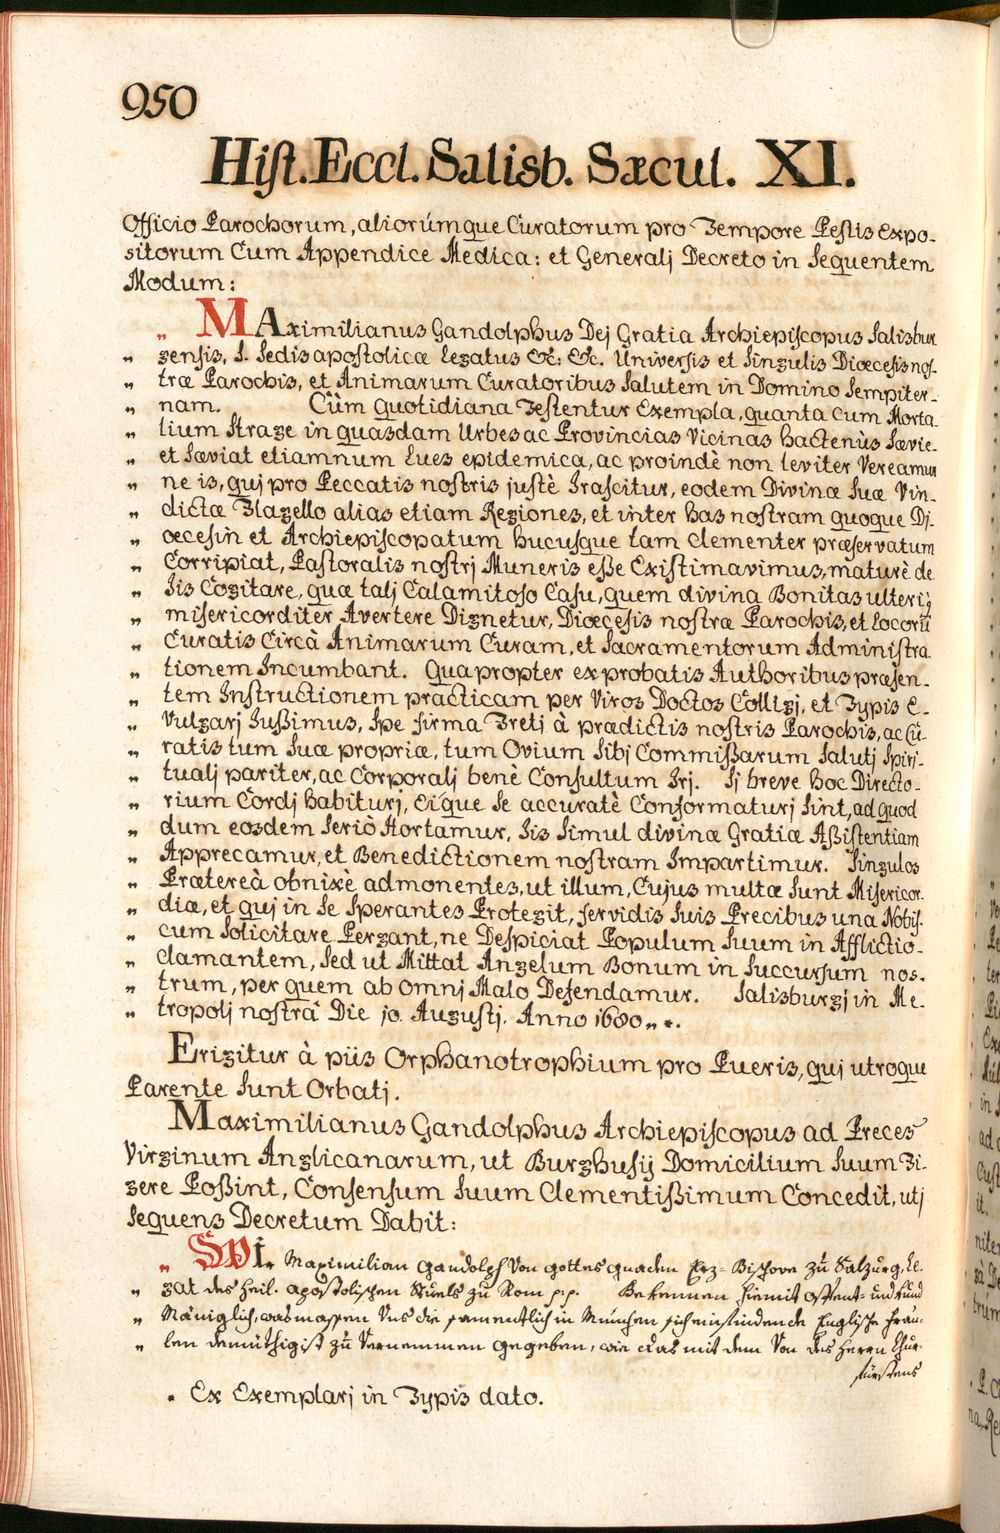 950
Hist. Eccl. Salisb. Sæcul. XI.
Officio Parochorum, aliorúmque Curatorum pro Tempore Pestis Expo-
sitorum Cum Appendice Medica: et Generalj Decreto in Sequentem
Modum:
„ MAximilianus Gandolphus Dej Gratia Archiepiscopus Salisbur
„ gensis, S. Sedis apostolicæ legatus &c: &c. Universis et Singulis Diœcesis nos-
„ træ Parochis, et Animarum Curatoribus Salutem in Domino Sempiter-
„ nam. Cùm quotidiana Testentur Exempla, quanta cum Morta-
„ lium Strage in quasdam Urbes ac Provincias Vicinas hactenùs Sævie-
„ et Sæviat etiamnum lues epidemica, ac proindè non leviter Vereamur
„ ne is, quj pro Peccatis nostris justè Irascitur, eodem Divinæ Suæ Vin-
„ dictæ Flagello alias etiam Regiones, et inter has nostram quoque Dj-
„ œcesin et Archiepiscopatum hucusque tam clementer præservatum
„ Corripiat, Pastoralis nostrj Muneris eße Existimavimus, maturè de
„ Jis Cogitare, quæ talj Calamitoso Casu, quem divina Bonitas ulteriꝰ
„ misericorditer Avertere Dignetur, Diœcesis nostræ Parochis, et locorū
„ Curatis Circà Animarum Curam, et Sacramentorum Administra
„ tionem Incumbant. Quapropter ex probatis Authoribus præsen-
„ tem Instructionem practicam per Viros Doctos Colligj, et Typis E-
„ Vulgarj Jußimus, Spe firma Fretj à prædictis nostris Parochis, ac Cu-
„ ratis tum Suæ propriæ, tum Ovium Sibj Commißarum Salutj Spirj-
„ tualj pariter, ac Corporalj benè Consultum Irj. Sj breve hoc Directo-
„ rium Cordj habiturj, Eique Se accuratè Conformaturj Sint, ad quod
„ dum eosdem Seriò Hortamur, Jis Simul divinæ Gratiæ Aßistentiam
„ Apprecamur, et Benedictionem nostram Impartimur. Singulos
„ Prætereà obnixè admonentes, ut illum, Cujus multæ Sunt Misericor.
„ diæ, et quj in Se Sperantes Protegit, fervidis Suis Precibus una Nobis-
„ cum Solicitare Pergant, ne Despiciat Populum Suum in Afflictio-
„ clamantem, Sed ut Mittat Angelum Bonum in Succursum nos-
„ trum, per quem ab omnj Malo Defendamur. Salisburgj in Me-
„ tropolj nostrâ Die 10. Augustj. Anno 1680 „ *.
Erigitur à piis Orphanotrophium pro Pueris, quj utroque
Parente Sunt Orbatj.
Maximilianus Gandolphus Archiepiscopus ad Preces
Virginum Anglicanarum, ut Burghusij Domicilium Suum Fi-
gere Poßint, Consensum Suum Clementißimum Concedit, utj
Sequens Decretum Dabit:
„ Wir Maximilian Gandolph Von Gottes gnaden Erz-Bischove zu Salzburg, Le-
„ gat des heil. Apostolischen Stuels zu Rom p.p. Bekennen hiemit offent- und kund
„ Mäniglich, was massen Uns die samentlich in München sich einfindende Englische Freü-
„ len demüthigist zu Vernemmen gegeben, wie das mit dem Von des Herrn Chur-
fürstens
* Ex Exemplarj in Typis dato.